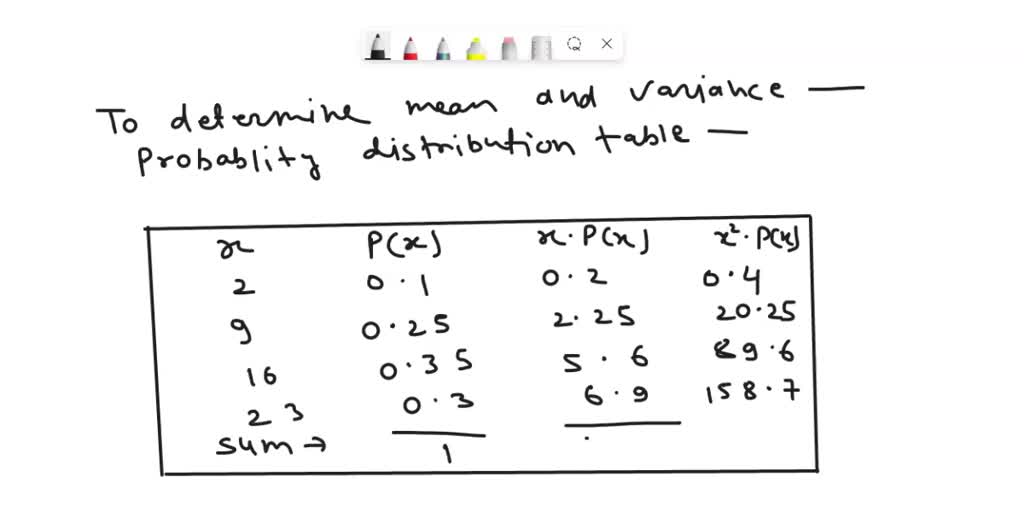 To determine mean and variance —
Probablity distribution table —
x P(x) x·P(x) x²·P(x)
2 0.1 0.2 0.4
9 0.25 2.25 20.25
16 0.35 5.6 89.6
23 0.3 6.9 158.7
sum → 1